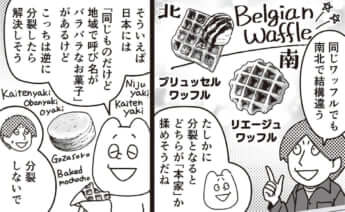 北
Belgian
Waffle
南
同じワッフルでも
南北で結構違う
ブリュッセル
ワッフル
リエージュ
ワッフル
たしかに
分裂となると
どちらが「本家」か
揉めそうだね
そういえば
日本には
「同じものだけど
地域で呼び名が
バラバラなお菓子」
があるけど
こっちは逆に
分裂したら
解決しそう
Nijū
yaki
Kaiten
yaki
Kaitenyaki
Obanyaki
Oyaki
Gozasoro
Baked
mochocho
分裂
しないで